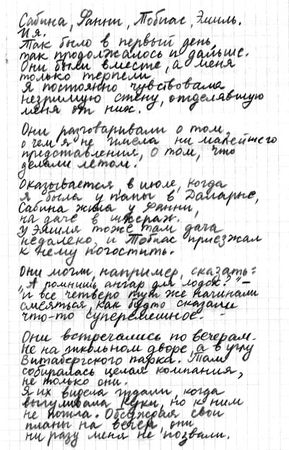 Сабина, Фанни, Тобиас, Эмиль.
И я.
Так было в первый день,
так продолжалось и дальше.
Они были вместе, а меня
только терпели.
Я постоянно чувствовала
незримую стену, отделявшую
меня от них.
Они разговаривали о том,
о чем я не имела ни малейшего
представления, о том, что
делали летом.
Оказывается, в июле, когда
я была у папы в Даларне,
Сабина жила у Фанни,
на даче в шхерах,
у Эмиля тоже там дача
недалеко, и Тобиас приезжал
к нему погостить.
Они могли, например, сказать:
"А помнишь ангар для лодок?" –
и все четверо тут же начинали
смеяться, как будто сказали
что-то суперсмешное.
Они встречались по вечерам.
Не на школьном дворе, а в углу
Витабергского парка. Там
собиралась целая компания,
не только они.
Я их видела издали, когда
выгуливала, но к ним
не пошла. Обсуждая свои
планы на вечер, они
ни разу меня не позвали.